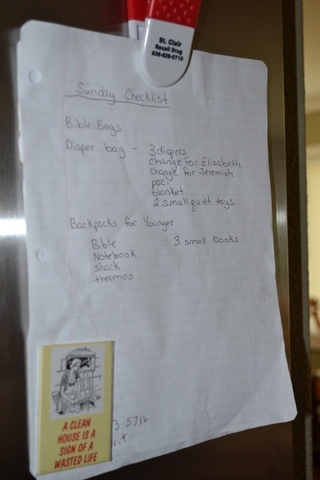 St. Clair
Rexall Drug
Sunday Checklist
Bible Bags
Diaper bag - 3 diapers
change for Elizabeth
change for Jeremiah
paci
blanket
2 small quiet toys
Backpacks for Younger
Bible 3 small books
Notebook
snack
thermos
3-5712
A CLEAN
HOUSE IS A
SIGN OF A
WASTED LIFE